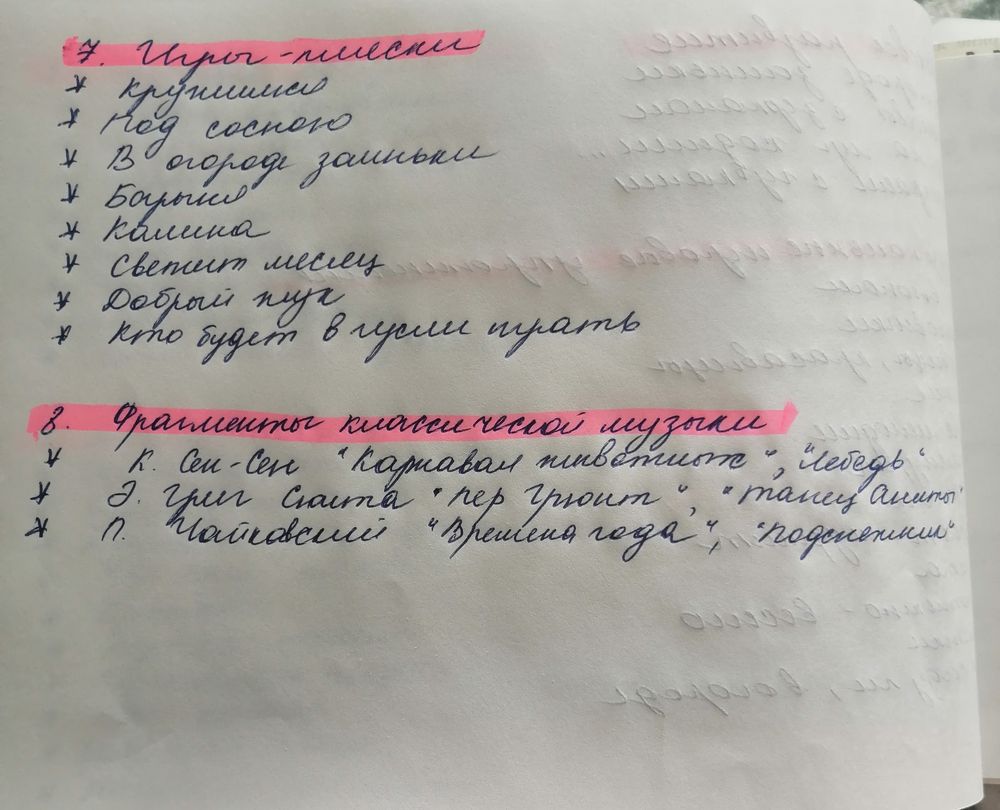 7. Игры-пляски
* Кружимся
* Под сосною
* В огороде заиньки
* Барыня
* Калина
* Светит месяц
* Добрый жук
* Кто будет в гусли играть
8. Фрагменты классической музыки
* К. Сен-Сен "Карнавал животных", "Лебедь"
* Э. Григ Сюита "Пер Гюнт", "Танец Анитры"
* П. Чайковский "Времена года", "Подснежник"